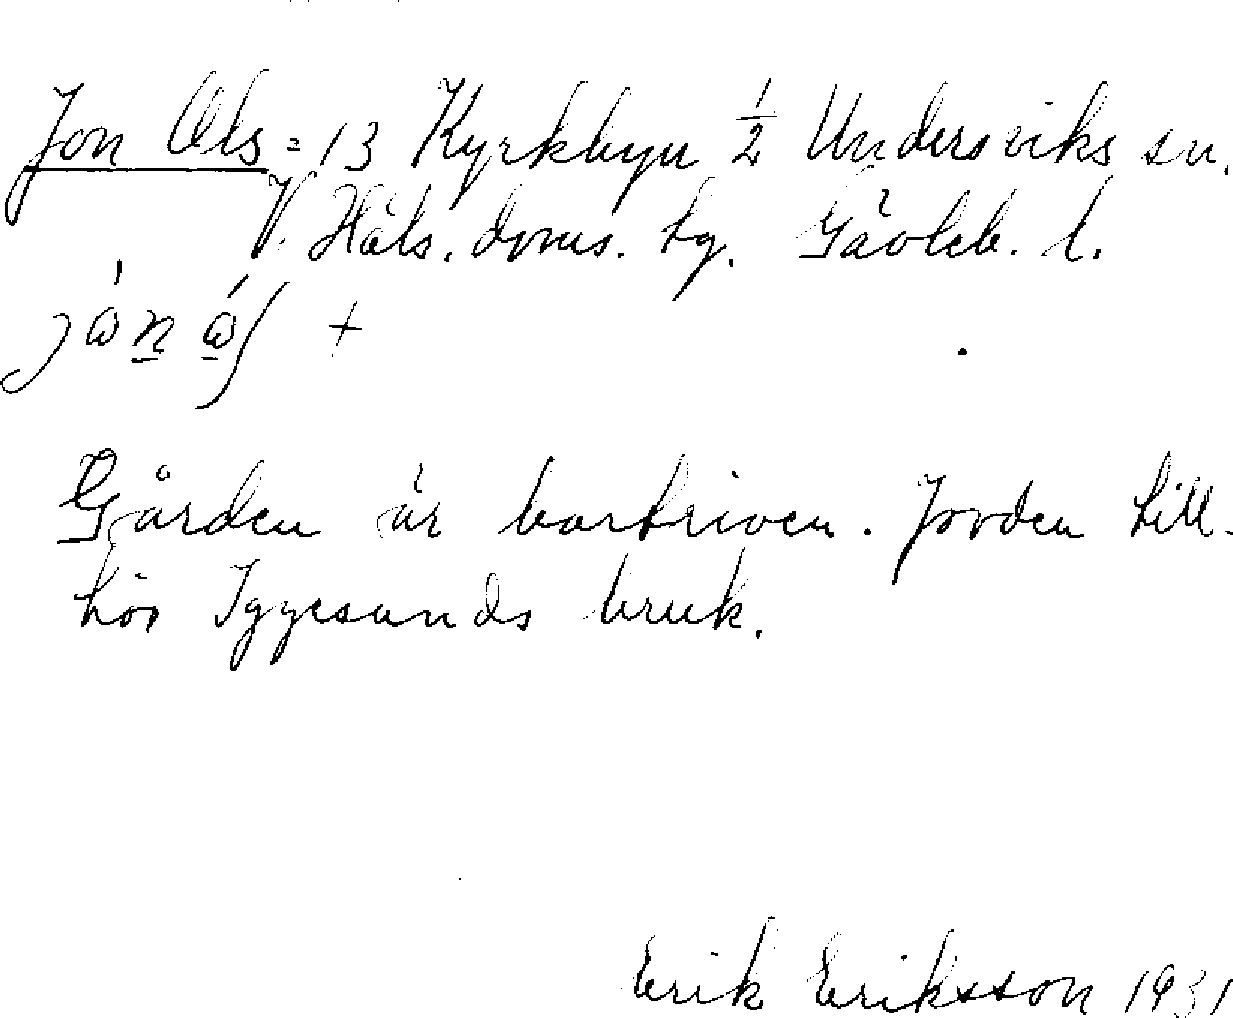 Jon Ols = 13 Kyrkbyn ½ Undersviks sn.
V. Häls. doms. tg. Gävleb. l.
Gården är bortriven. Jorden till-
hör Iggesunds bruk.
Erik Eriksson 1931